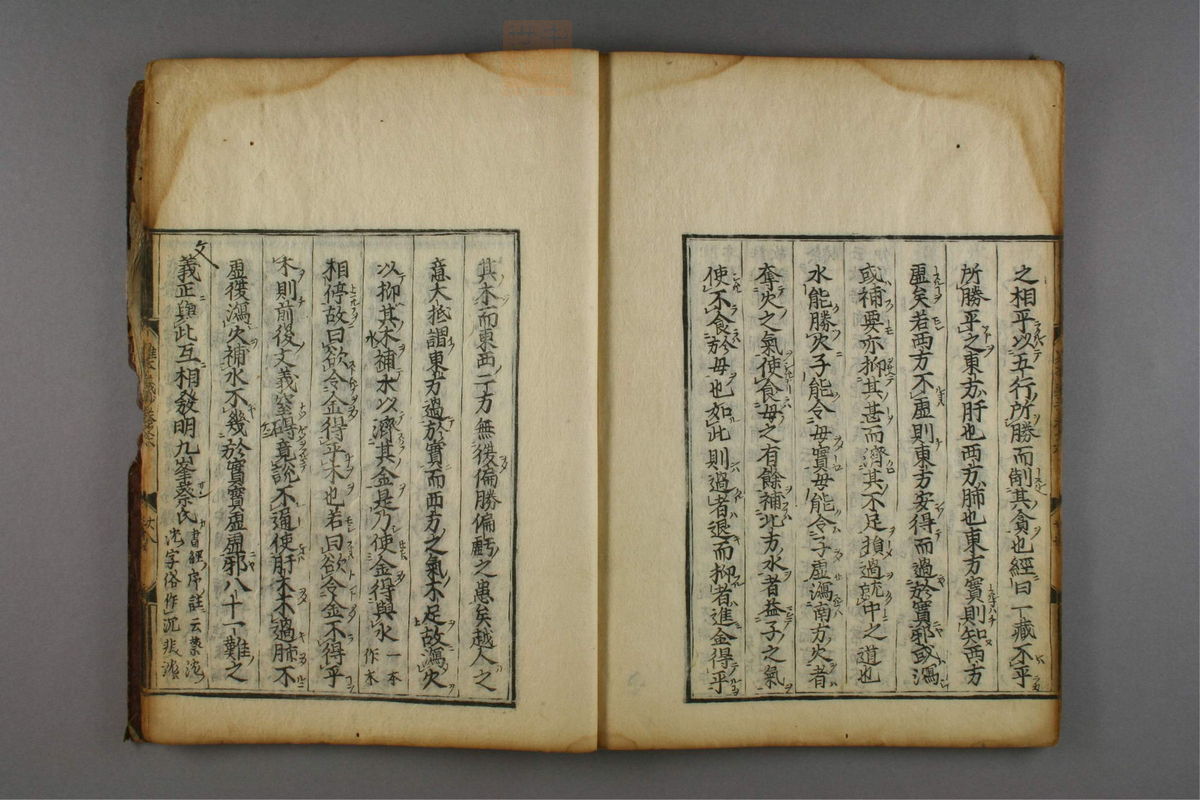 之相平以五行所勝而制其貪也經曰一藏不平
所勝平之東方肝也西方肺也東方實則知西方
虛矣若西方不虛則東方安得而過於實邪或瀉
或補要亦抑其甚而濟其不足損過就中之道也
水能勝火子能令母實母能令子虛瀉南方火者
奪火之氣使食母之有餘補北方水者益子之氣
使不食於母也如此則過者退而抑者進金得平
其木而東西二方無復偏勝偏虧之患矣越人之
意大抵謂東方過於實而西方之氣不足故瀉火
以抑其木補水以濟其金是乃使金得與水一本作木
相停故曰欲令金得平木也若曰欲令金不得平
木則前後文義窒碍竟說不通使肝木不過肺不
虛復瀉火補水不幾於實實虛虛邪八十一難之
文義正與此互相發明九峯蔡氏書經序註云蔡沈沈字俗作沉非